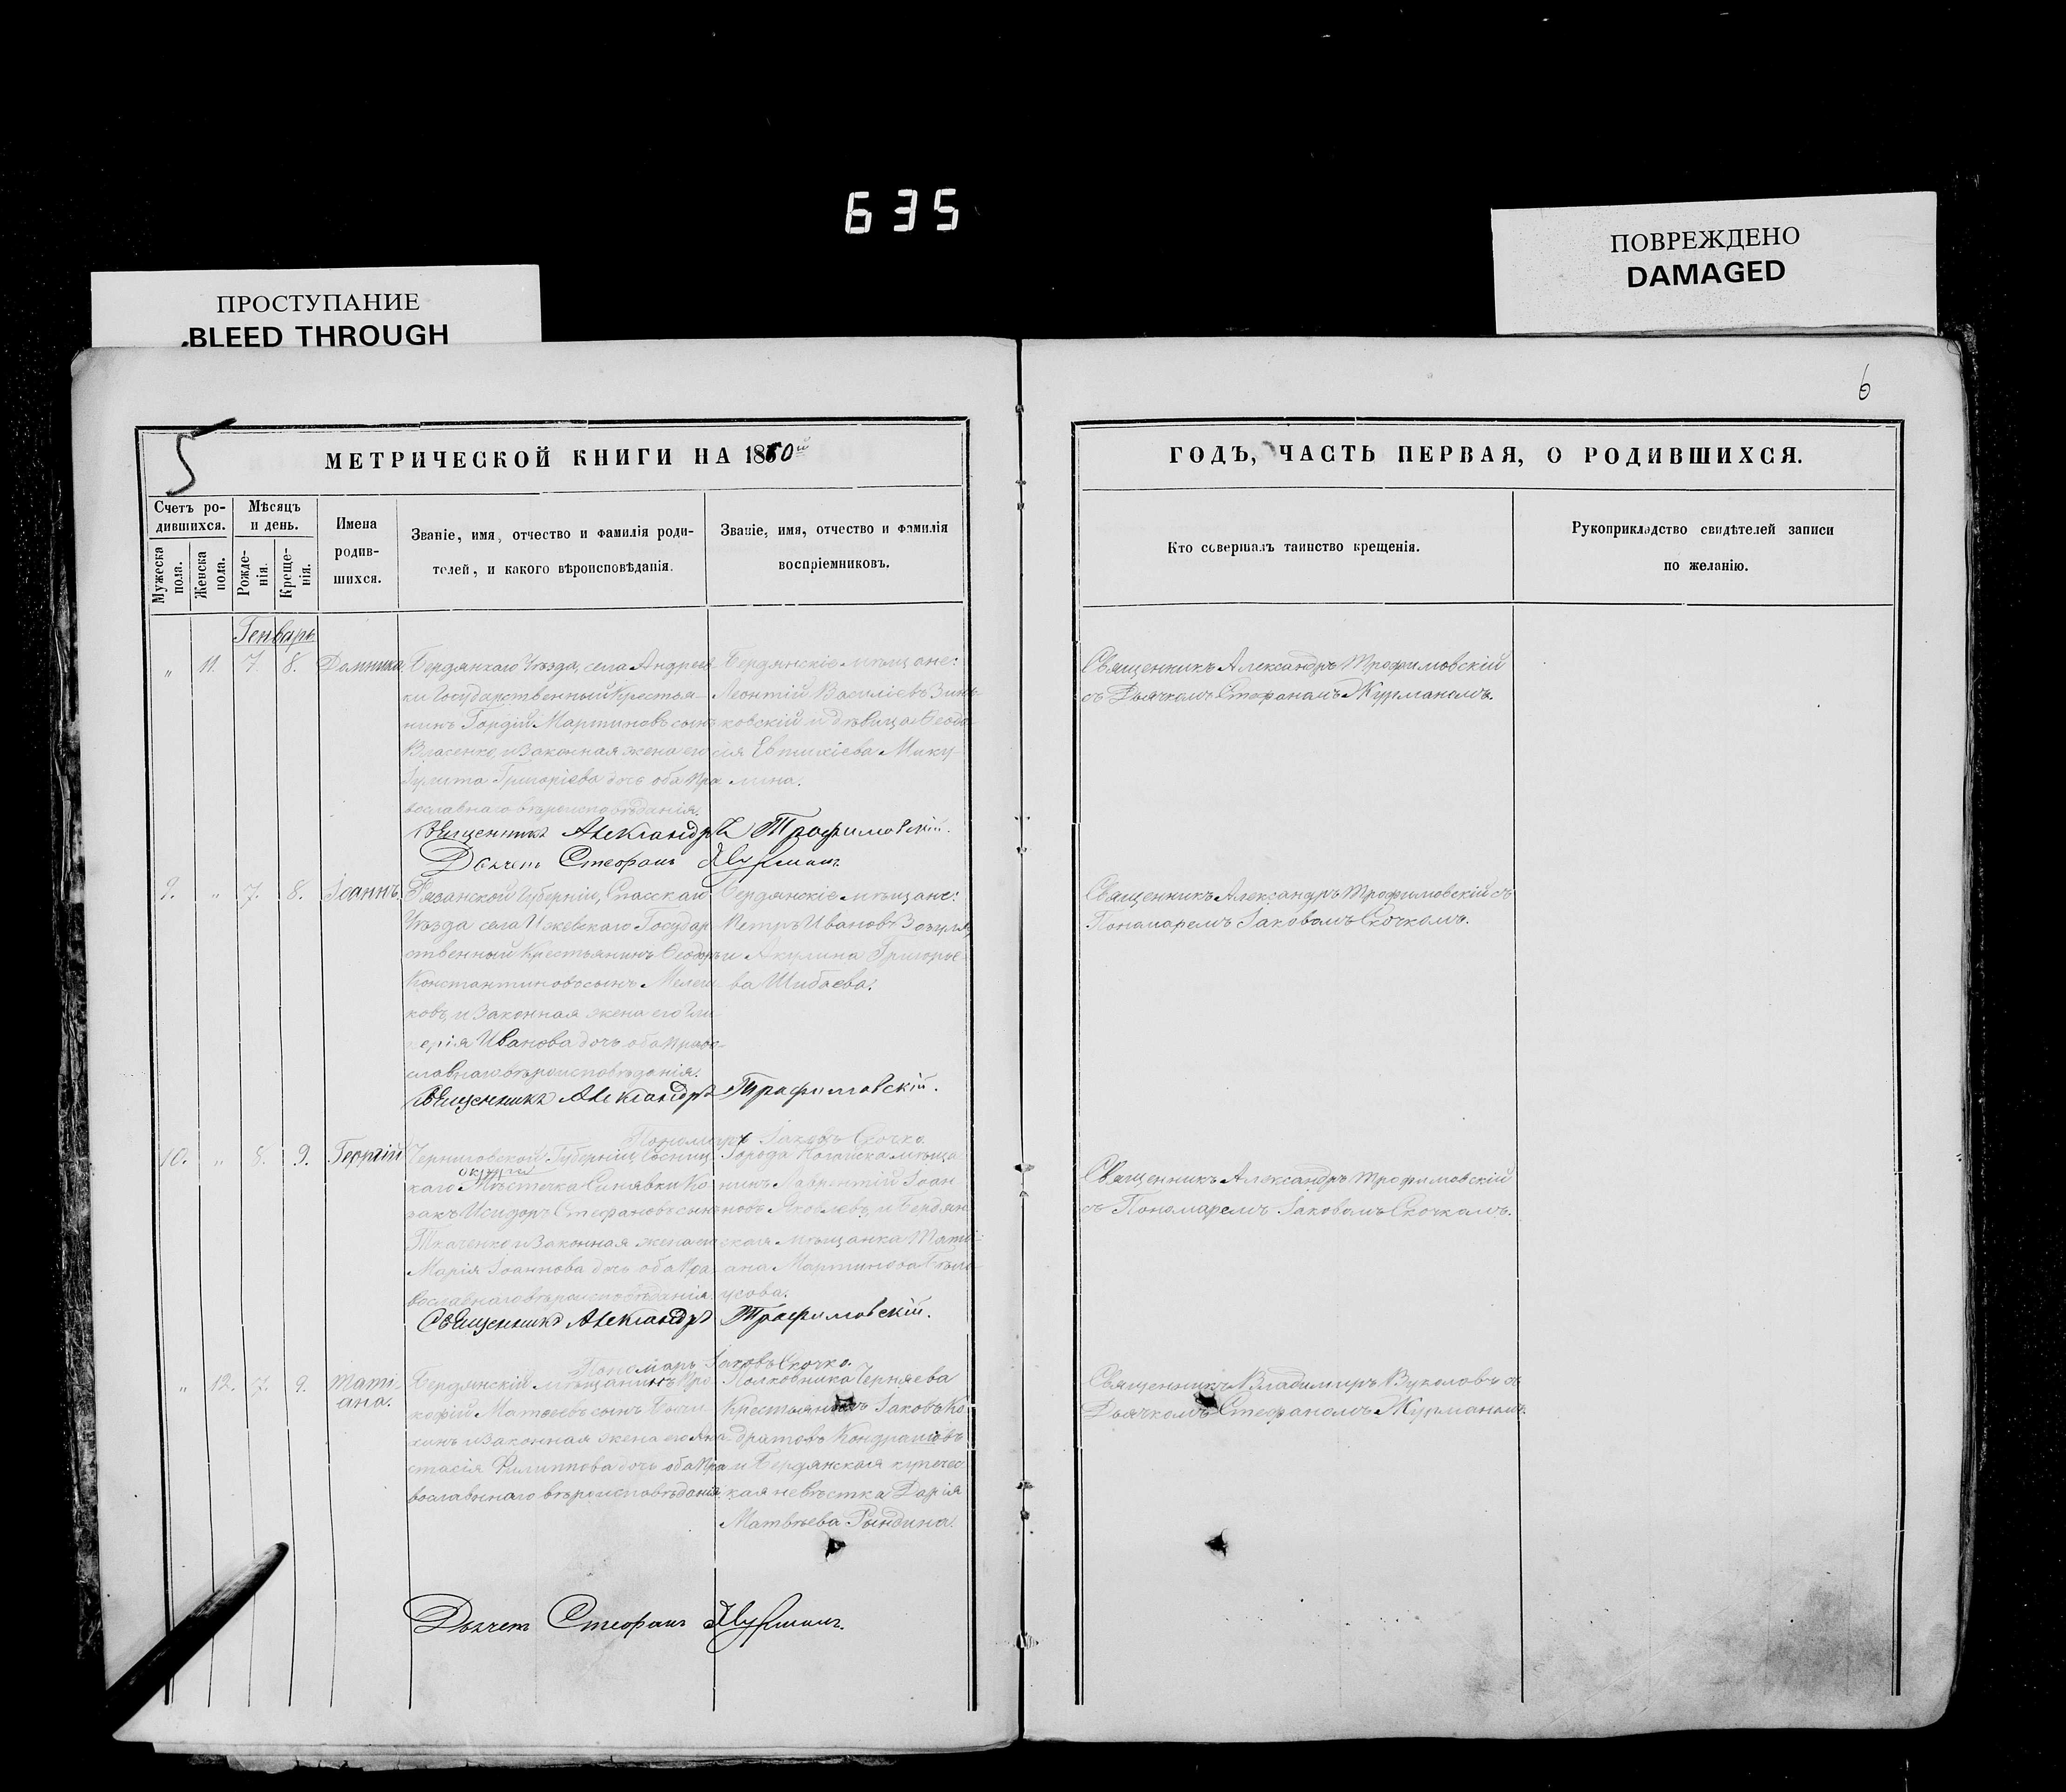 635
ПРОСТУПАНИЕ
BLEED THROUGH
ПОВРЕЖДЕНО
DAMAGED
6
5
МЕТРИЧЕСКОЙ КНИГИ НА 1860й
ГОДЪ, ЧАСТЬ ПЕРВАЯ, О РОДИВШИХСЯ.
Счетъ ро-
дившихся.
Мужеска
пола.
Женска
пола.
Мѣсяцъ
и день.
Рожде-
нія.
Креще-
нія.
Имена
родив-
шихся.
Званіе, имя, отчество и фамилія роди-
телей, и какого вѣроисповѣданія.
Званіе, имя, отчество и фамилія
воспріемниковъ.
Кто совершалъ таинство крещенія.
Рукоприкладство свидѣтелей записи
по желанію.
Генварь
„ 11. 7. 8. Домника
Бердянскаго Уѣзда, села Андреев
ки Государственный Крестья-
нинъ Гордій Мартиновъ сынъ
Власенко, и законная жена его
Григоріева дочь оба пра
вославнаго вѣроисповѣданія.
Бердянскіе мѣщане:
Леонтій Василіевъ Зинь-
ковскій и дѣвица Ѳеодо-
сія Евтихіева Мику-
лина.
Священникъ Александръ Трофимовскій
съ Дьячкомъ Стефаномъ Журманомъ.
Священникъ Александръ Трофимовскій.
Дьячекъ Стефанъ Журманъ.
9. „ 7. 8. Іоаннъ.
Рязанской Губерніи, Спасскаго
Уѣзда села Ижевскаго Государ
ственный Крестьянинъ Ѳеодоръ
Константиновъ сынъ Мелеш
ковъ, и законная жена его Гли
керія Иванова дочь оба право-
славнаго вѣроисповѣданія.
Бердянскіе мѣщане:
Петръ Ивановъ
и Акулина Григорье-
ва Шибаева.
Священникъ Александръ Трофимовскій съ
Пономаремъ Іаковомъ Скочкомъ.
Священникъ Александръ Трофимовскій.
Пономарь Іаковъ Скочко.
10. „ 8. 9. Георгій
Черниговской Губерніи, Сосниц
округи
каго Мѣстечка Синявки Ко
закъ Исидоръ Стефановъ сынъ
Ткаченко, и законная жена его
Марія Іоаннова дочь оба пра-
вославнаго вѣроисповѣданія.
Города Ногайска мѣща
нинъ Лаврентій Іоан
новъ Яковлевъ, и Бердян
ская мѣщанка Тати-
ана Мартинова Бѣло-
усова.
Священникъ Александръ Трофимовскій
съ Пономаремъ Іаковомъ Скочкомъ.
Священникъ Александръ Трофимовскій.
Пономарь Іаковъ Скочко.
„ 12. 7. 9. Тати-
ана.
Бердянскій мѣщанинъ Про
кофій Матѳеевъ сынъ
и законная жена его Ана-
стасія Филиппова дочь оба пра
вославнаго вѣроисповѣданія.
Полковника Черняева
Крестьянинъ Іаковъ Ко
дратовъ Кондратовъ
и Бердянская купечес
кая невѣстка Дарія
Матвѣева Рындина.
Священникъ Владимиръ Вуколовъ съ
Дьячкомъ Стефаномъ Журманомъ.
Дьячекъ Стефанъ Журманъ.